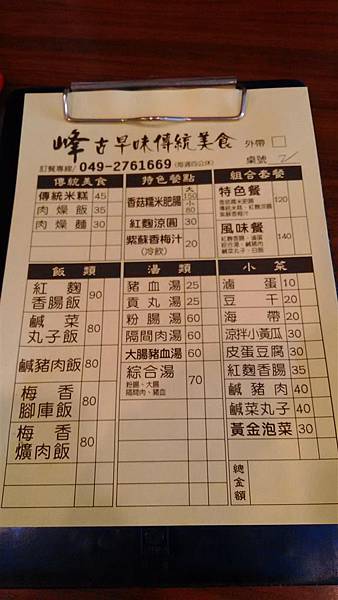 峰古早味傳統美食 外帶
訂餐專線/ 049-2761669 (每週四公休) 桌號 7/
傳統美食 特色餐點 組合套餐
傳統米糕 45
肉燥飯 35
肉燥麵 30
香菇糯米肥腸 大150 小80
紅麴涼圓 30
紫蘇香梅汁 (冷飲) 20
特色餐 120
香菇糯米肥腸
傳統米糕、紅麴涼圓
紫蘇香梅汁
風味餐 140
紅麴香腸、滷蛋
綜合湯、鹹豬肉
鹹菜丸子、白飯
飯類 湯類 小菜
紅麴香腸飯 90
鹹菜丸子飯 80
鹹豬肉飯 80
梅香腳庫飯 80
梅香爌肉飯 80
豬血湯 25
貢丸湯 25
粉腸湯 60
隔間肉湯 60
大腸豬血湯 60
綜合湯 70
粉腸、大腸
隔間肉、豬血
滷蛋 10
豆干 20
海帶 20
涼拌小黃瓜 30
皮蛋豆腐 30
紅麴香腸 35
鹹豬肉 40
鹹菜丸子 40
黃金泡菜 30
總金額